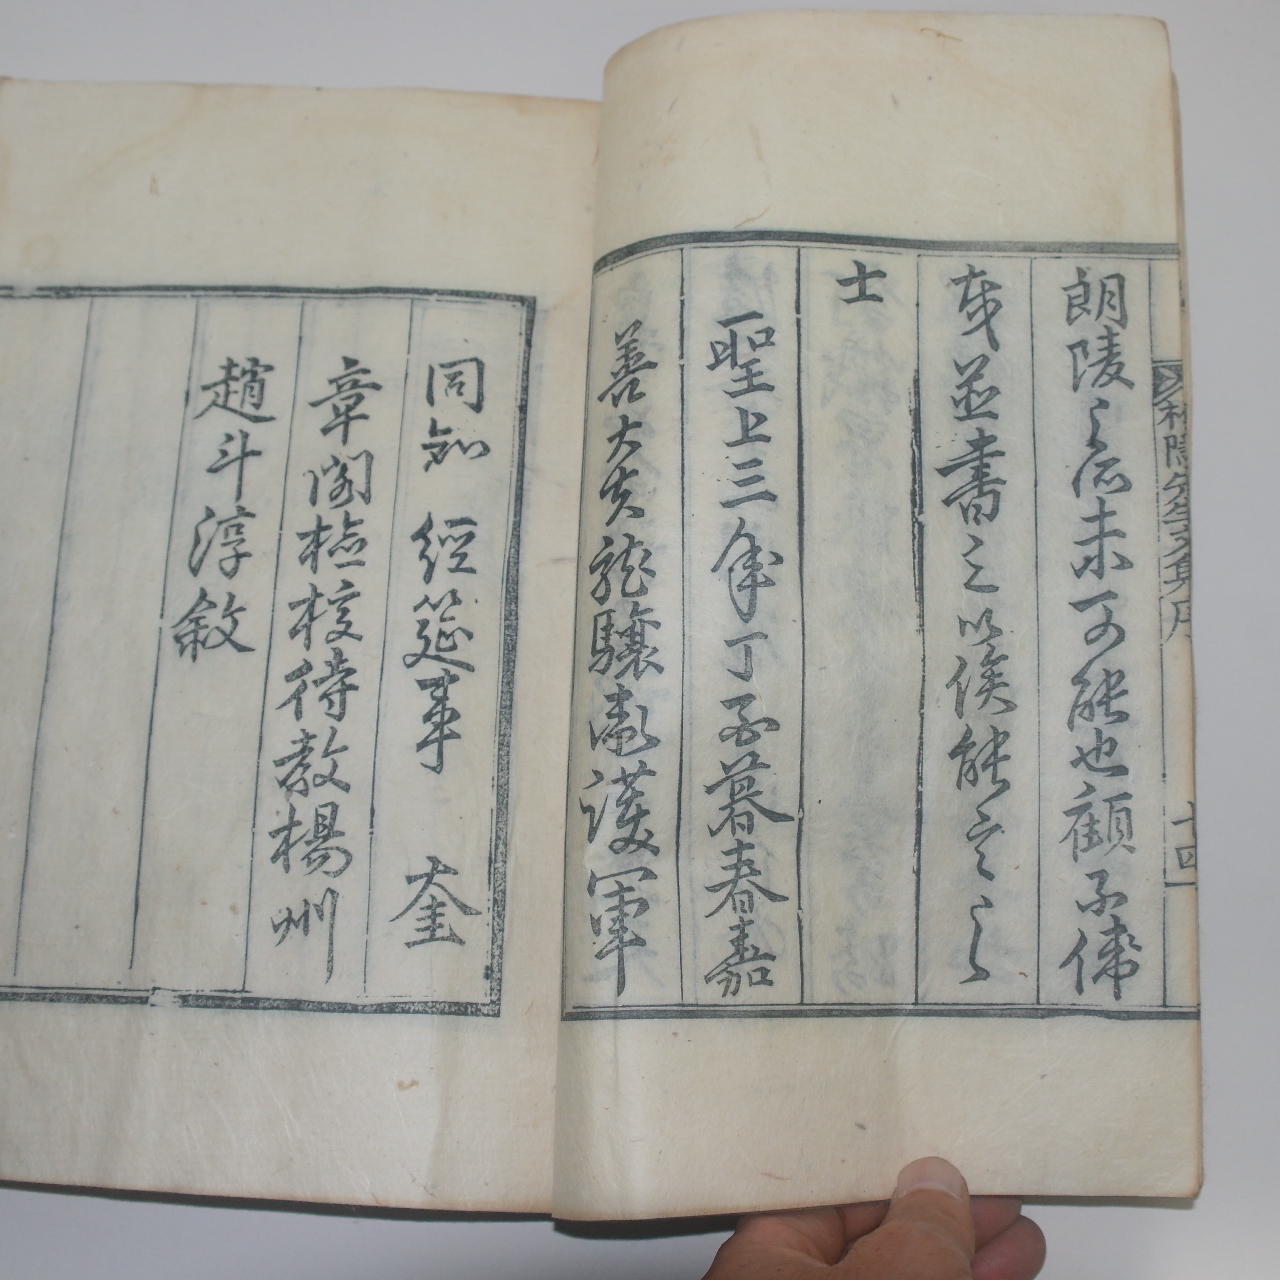 朗陵之派未可能也顧子俾
並書之以俟能言之
士
聖上三年丁子暮春嘉
善大夫龍驤衛護軍
同知 經筵事 奎
章閣檢校待教楊州
趙斗淳敘
隱先生文集序
十四